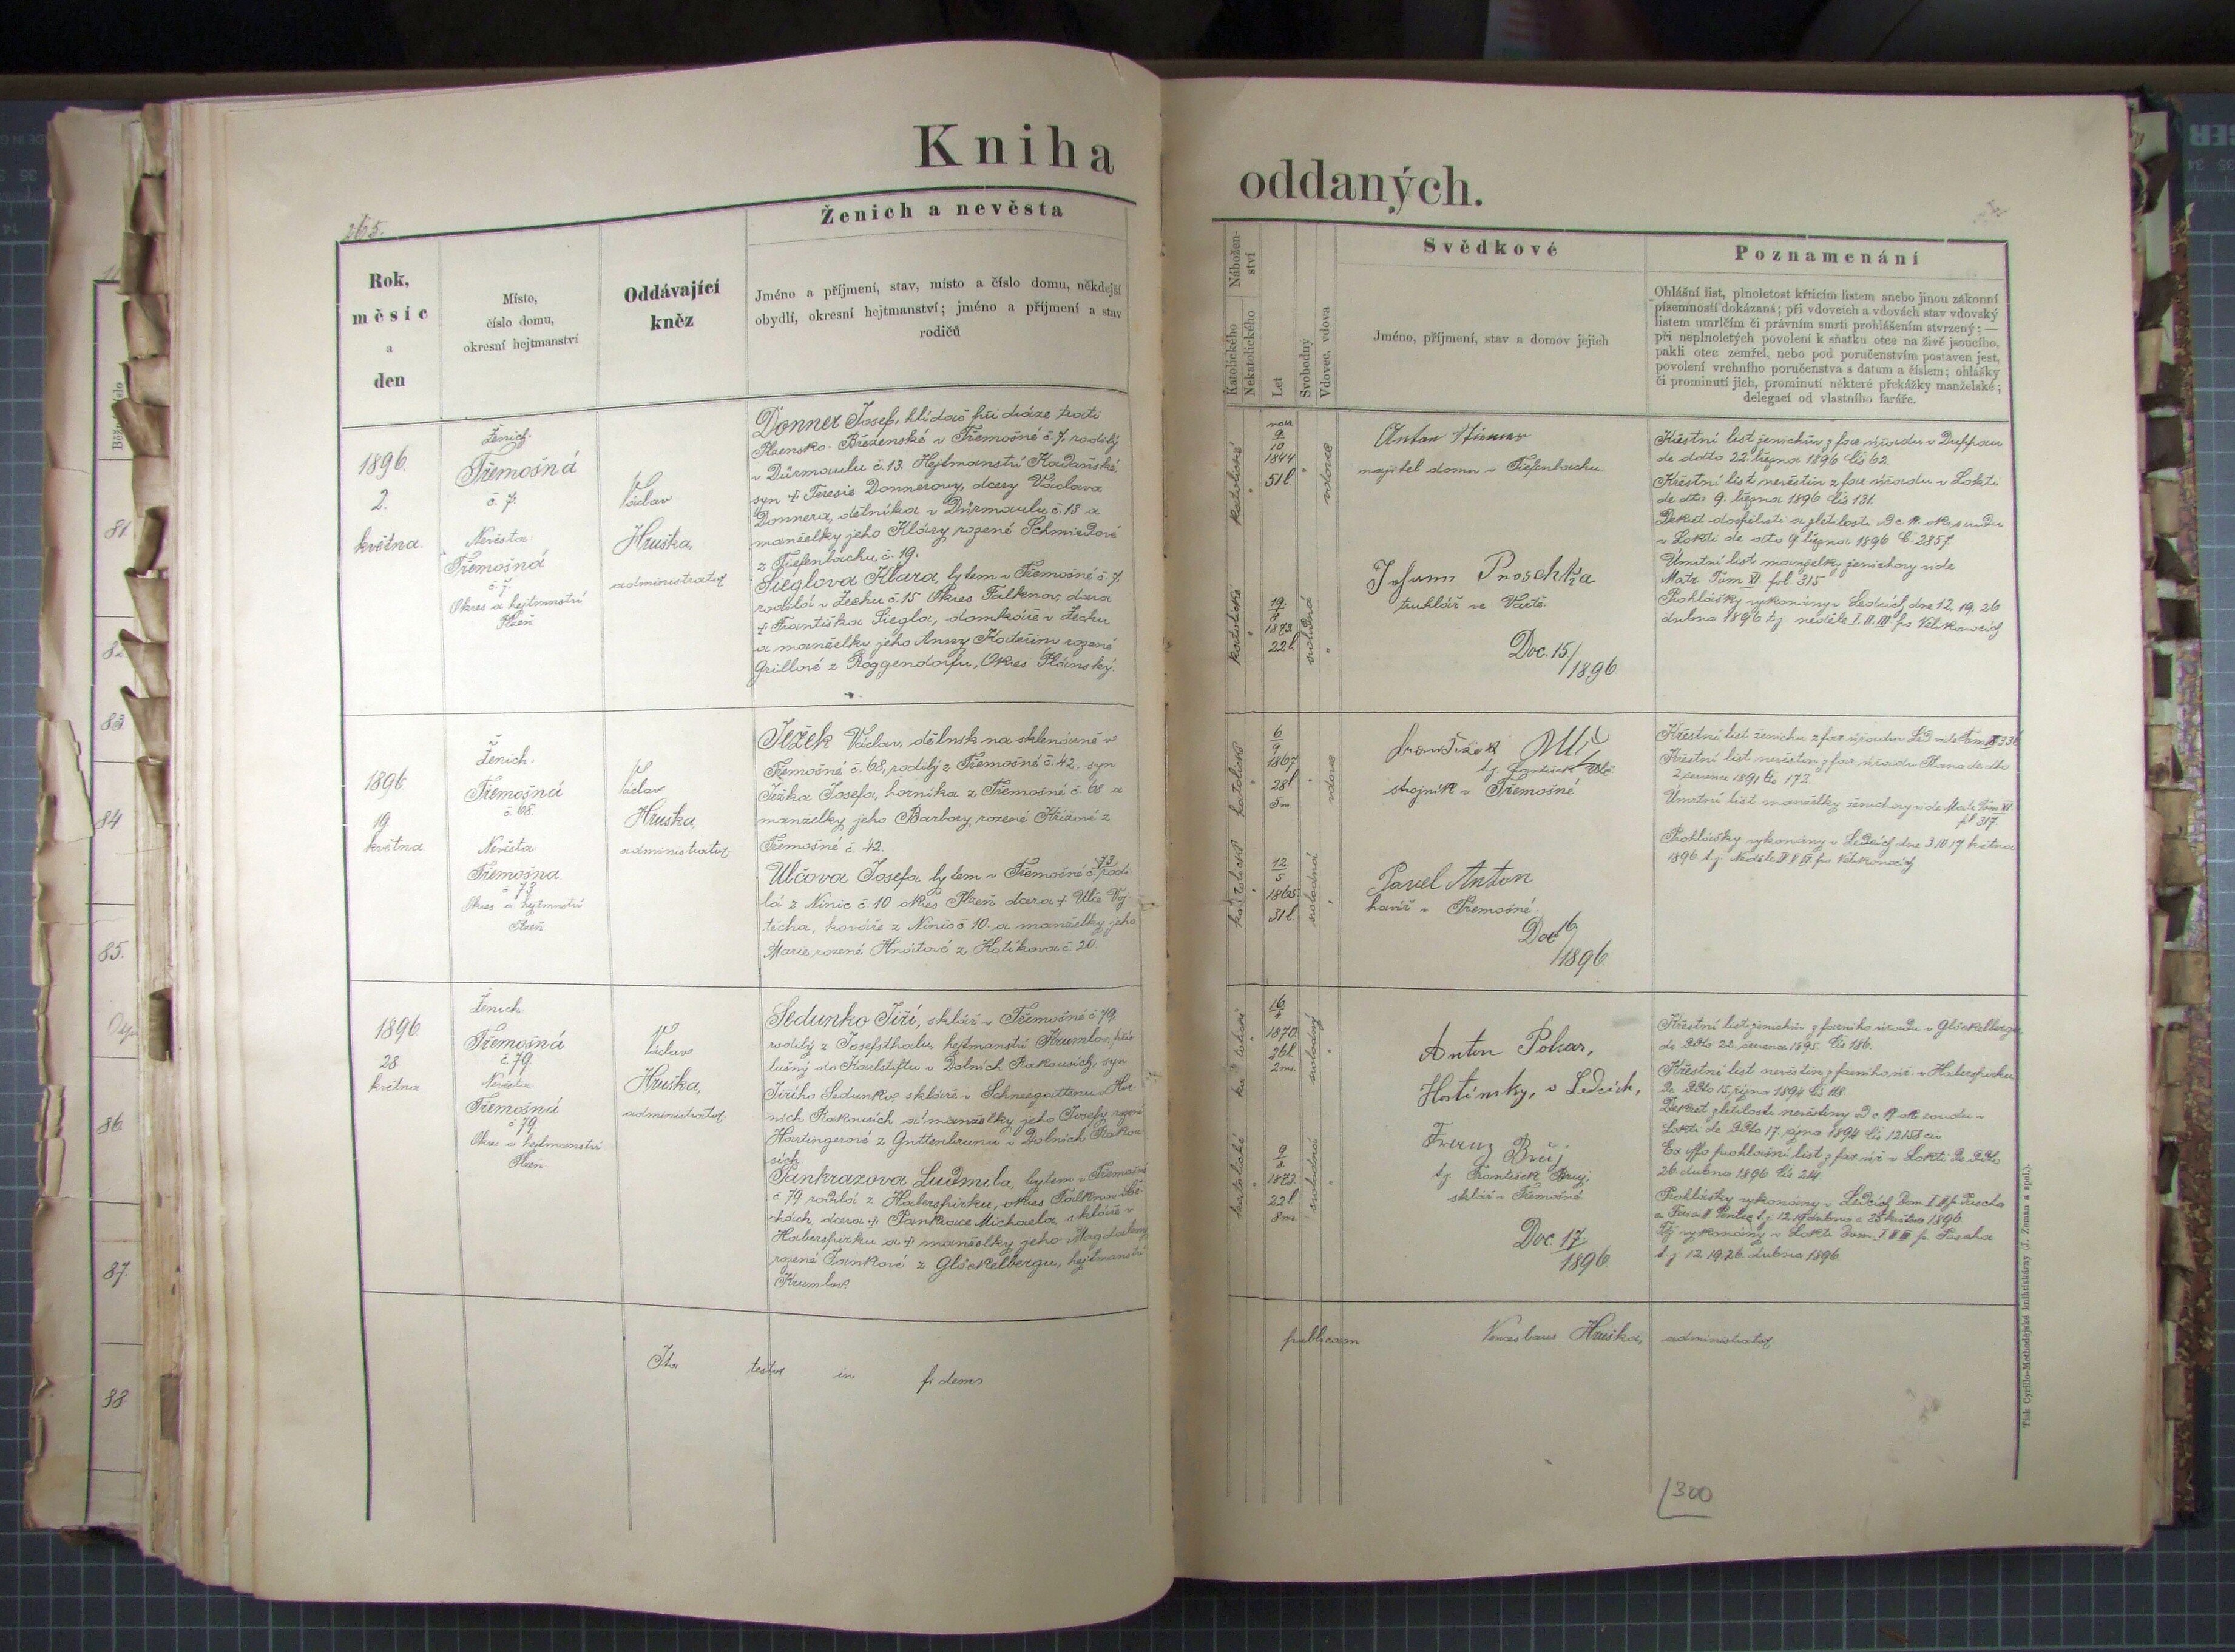 Kniha
oddaných.
265.
Rok,
měsíc
a
den
Místo,
číslo domu,
okresní hejtmanství
Oddávající
kněz
Ženich a nevěsta
Jméno a příjmení, stav, místo a číslo domu, někdejší
obydlí, okresní hejtmanství; jméno a příjmení a stav
rodičů
Nábožen-
ství
Katolického
Nekatolického
Let
Svobodný
Vdovec, vdova
Svědkové
Jméno, příjmení, stav a domov jejich
Poznamenání
Ohlášní list, plnoletost křticím listem anebo jinou zákonní
písemností dokázaná; při vdovcích a vdovách stav vdovský
listem umrlčím či právním smrti prohlášením stvrzený; —
při neplnoletých povolení k sňatku otce na živě jsoucího,
pakli otec zemřel, nebo pod poručenstvím postaven jest,
povolení vrchního poručenstva s datum a číslem; ohlášky
či prominutí jich, prominutí některé překážky manželské;
delegací od vlastního faráře.
1896.
2.
května.
Ženich:
Třemošná
č. 7.
Nevěsta:
Třemošná
č. 7.
Okres a hejtmnství
Plzeň
Václav
Hruška,
administrator
Donner Josef, hlídač při dráze trati
Plzensko-Březenské v Třemošné č. 7, rodilý
v Dürmaulu č. 13. Hejtmanství Kadaňské
syn † Teresie Donnerovy, dcery Václava
Donnera, dělníka v Dürmaulu č. 13 a
manželky jeho Kláry rozené Schmiedové
z Tiefenbachu č. 19.
Sieglova Klara, bytem v Třemošné č. 7.
rodilá v Zechu č. 15 Okres Falknov, dcera
† Františka Siegla, domkáře v Zechu
a manželky jeho Anny Kateřiny rozené
Grillové z Roggendorfu, Okres Plánský.
katolické
9
10
1844
51 l.
vdovec
katolické
19
1873
22 l
svobodná
Anton
majitel domu v Tiefenbachu.
Johann Proschka
truhlář ve Vartě.
Doc. 15/1896
Křestní list ženichův z far. úřadu v Duppau
de dato 22. března 1896 čís 62.
Křestní list nevěstin z far. úřadu v Lokti
de dto 9. března 1896 čís 131.
Dekret dospělosti a zletilosti od c. k. okr. soudu
v Lokti de dto 9 března 1896 č. 2857
Úmrtní list manželky ženichovy vide
Matr Tom XI. fol. 315
Prohlášky vykonány v Ledcích dne 12, 19, 26
dubna 1896 t. j. neděle I. II. III po Velikonocích
1896.
19
května
Ženich:
Třemošná
č. 68.
Nevěsta:
Třemošna.
č 73
Okres a hejtmnství
Plzeň
Václav
Hruška,
administrator
Ježek Václav, dělník na sklenárně v
Třemošné č. 68, rodilý z Třemošné č. 42, syn
Ježka Josefa, horníka z Třemošné č. 68 a
manželky jeho Barbory rozené Křížové z
Třemošné č. 42.
Ulčova Josefa bytem v Třemošné č. 73 rodi-
lá z Nímic č. 10 okres Plzeň dcera † Ulče Voj-
těcha, kováře z Nímic č 10. a manželky jeho
Marie rozené Hnátové z Kotíkova č. 20.
katolické
6
9
1867
28 l
8 m.
vdovec
katolické
12
5
1865
31 l.
svobodná
František Ulč
t. j. František Ulč
strojník v Třemošné
Pavel Anton
havíř v Třemošné.
Doc 16/1896
Křestní list ženichův z far. úřadu v Led. vide Tom
Křestní list nevěstin z far. úřadu Plana de dto
2 července 1891 čís 172
Úmrtní list manželky ženichovy vide Matr. Tom XI.
fol 317.
Prohlášky vykonány v Ledcích dne 3 10 17 května
1896 t. j. Neděle IV V VI po Velikonocích
1896
28.
května
Ženich
Třemošná
č. 79
Nevěsta
Třemošná
č 79
Okres a hejtmanství
Plzeň.
Václav
Hruška,
administrator
Sedunko Jiří, sklář v Třemošné č. 79,
rodilý z Josefsthalu, hejtmanství Krumlov, přís-
lušný do Karlstiftu v Dolních Rakousích, syn
Jiřího Sedunko, skláře v Schneegattenu v Hor-
ních Rakousích a manželky jeho Josefy rozené
Hartingerové z Guttenbrunu v Dolních Rakou-
sích.
Pankrazova Ludmila, bytem v Třemošné
č 79 rodilá z Haberspirku, okres Falknov v Če-
chách, dcera † Pankrace Michaela, skláře v
Haberspirku a † manželky jeho Magdaleny
rozené Jankové z Glöckelbergu, hejtmanství
Krumlov.
16
4
1870
26 l
2 ms.
svobodný
katolické
9
1873
22 l
8 ms
svobodná
Anton Pokar,
Hostinsky, v Ledcich,
Franz Bruj
t. j. František Bruj,
sklář v Třemošné
Doc. 17/1896
Křestní list ženichův z farního úřadu v Glöckelbergu
de Ddto 22. července 1895 čís 186.
Křestní list nevěstin z farního úř. v Haberspirku
De Ddto 15. října 1894 čís 118.
Dekret zletilosti nevěstiny od c. k. okr. soudu v
Lokti de Ddto 17 října 1894 čís 12158 civ
Ex offo prohlašní list z far. úř. v Lokti De Ddto
26 dubna 1896 čís 214
Prohlášky vykonány v Ledcích Dom. I II p. Pascha
a Feria II Pentec t. j. 12 19 dubna a 25 května 1896.
Též vykonány v Lokti Dom. I II III p. Pascha
t. j. 12 19 26. dubna 1896.
Ita testor in fidem
publicam Venceslaus Hruška, administrator
300
Tisk Cyrillo-Methodějské knihtiskárny (J. Zeman a spol.).
81.
82
83
84
85.
86.
87.
88.